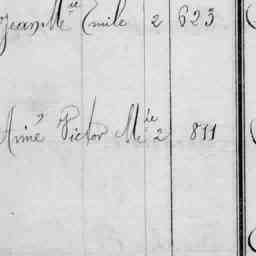 Jean Mie Emile 2 623
Aimé Victor Mie 2 811